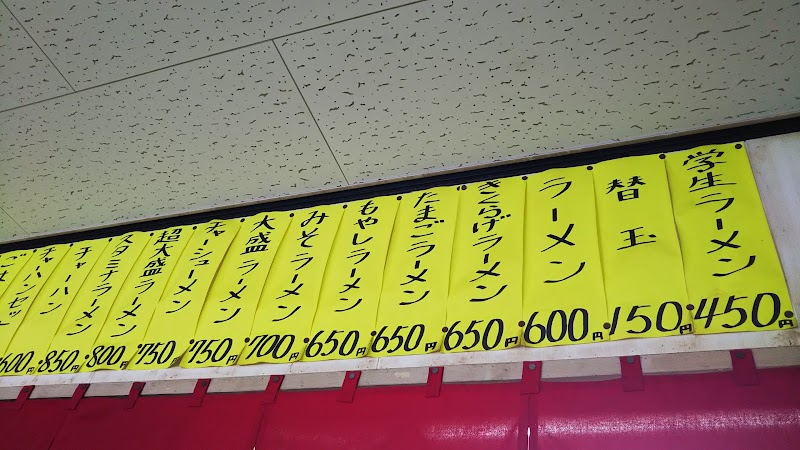 学生ラーメン
450円
替玉
150円
ラーメン
600円
きくらげラーメン
650円
たまごラーメン
650円
もやしラーメン
650円
みそラーメン
700円
大盛ラーメン
750円
チャーシューメン
750円
超大盛ラーメン
800円
スタミナラーメン
850円
チャーハン
600円
チャーハンセット